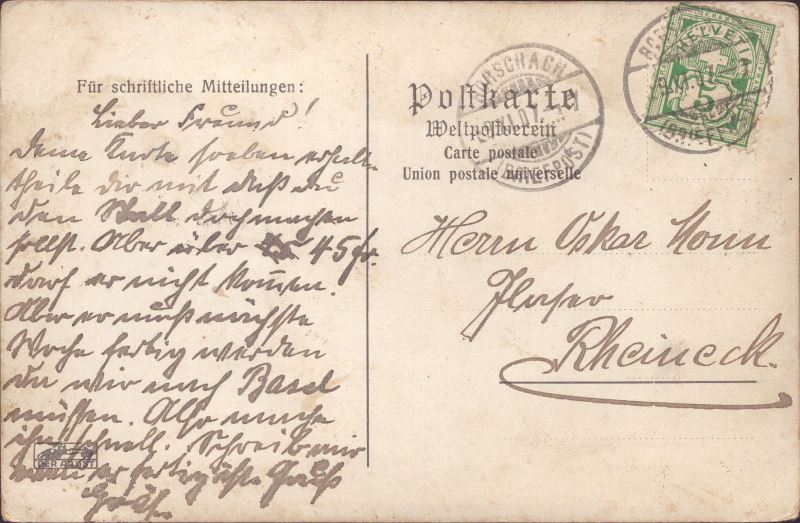 Für schriftliche Mitteilungen:
Lieber Freund!
Deine Karte soeben erhalten
theile dir mit daß du
den Stall doch machen
sollst. Aber über 45 fr.
darf er nicht kommen.
Aber er muß nächste
Woche fertig werden
da wir nach Basel
müssen. Also mache
ihn schnell. Schreib mir
wenn er fertig ist. Gruß
RORSCHACH
9.XI.01
(BRIEFPOST)
Postkarte
Weltpostverein
Carte postale
Union postale universelle
HELVETIA
5
9.XI.01
(BRIEFPOST)
Herrn Oskar
Glaser
Rheineck.